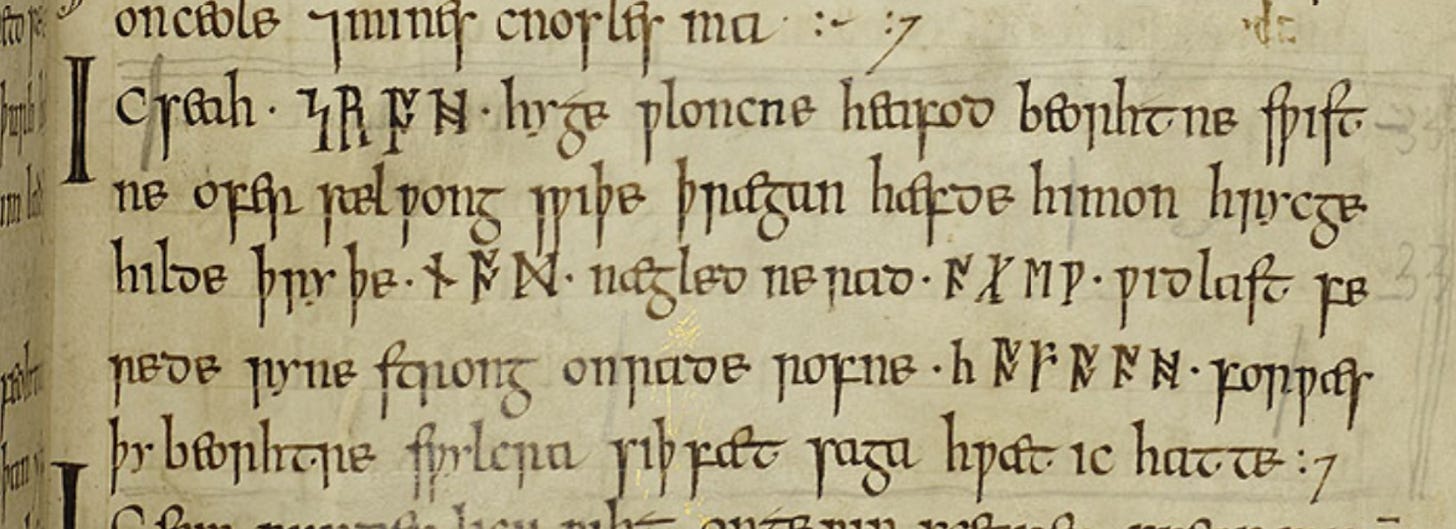 onceole ⁊mines cnosles ma :- :7
IC seah · ᛋᚱᚩᚻ · hyge ƿloncne heafod beorhtne sƿist
ne ofer sælƿong sƿiþe þrægan hæfde himon hrycge
hilde þryþe · ᚾᚩᛗ · nægled ne rad · ᚪᚷᛖᚹ · ƿidlast fe
rede ryne strong onrade rofne · ᚳᚩᚠᚩᚪᚻ · forƿæs
þy beorhtre sƿylcra siþfæt saga hƿæt ic hatte :7